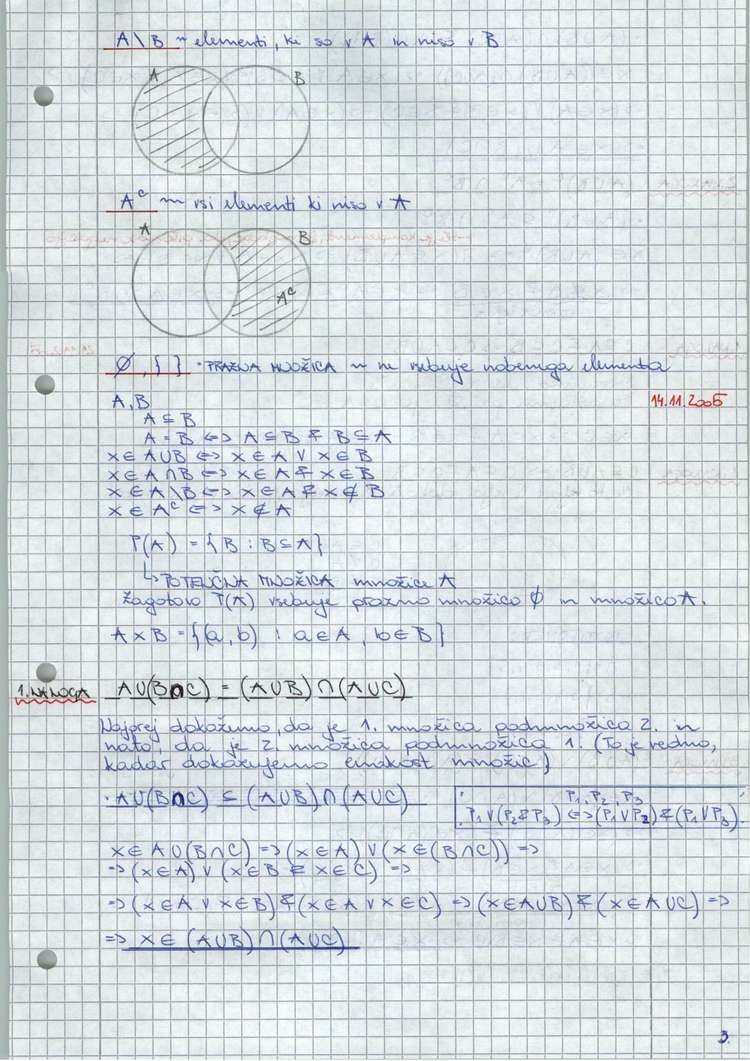 A \ B ~ elementi, ki so v A in niso v B
A B
Aᶜ ~ vsi elementi ki niso v A
A B
Aᶜ
∅, { } · PRAZNA MNOŽICA ~ ne vsebuje nobenega elementa
A, B
14.11.2005
A ⊆ B
A = B <=> A ⊆ B & B ⊆ A
x ∈ A ∪ B <=> x ∈ A ∨ x ∈ B
x ∈ A ∩ B <=> x ∈ A & x ∈ B
x ∈ A \ B <=> x ∈ A & x ∉ B
x ∈ Aᶜ <=> x ∉ A
P(A) = {B : B ⊆ A}
↳ POTENČNA MNOŽICA množice A
Zagotovo P(A) vsebuje prazno množico ∅ in množico A.
A × B = {(a, b) : a ∈ A, b ∈ B}
1. NALOGA A ∪ (B ∩ C) = (A ∪ B) ∩ (A ∪ C)
Najprej dokažemo, da je 1. množica podmnožica 2. in
nato, da je 2. množica podmnožica 1. (To je vedno,
kadar dokazujemo enakost množic)
· A ∪ (B ∩ C) ⊆ (A ∪ B) ∩ (A ∪ C)
P₁, P₂, P₃
P₁ ∨ (P₂ & P₃) <=> (P₁ ∨ P₂) & (P₁ ∨ P₃).
x ∈ A ∪ (B ∩ C) => (x ∈ A) ∨ (x ∈ (B ∩ C)) =>
=> (x ∈ A) ∨ (x ∈ B & x ∈ C) =>
=> (x ∈ A ∨ x ∈ B) & (x ∈ A ∨ x ∈ C) => (x ∈ A ∪ B) & (x ∈ A ∪ C) =>
=> x ∈ (A ∪ B) ∩ (A ∪ C)
3.